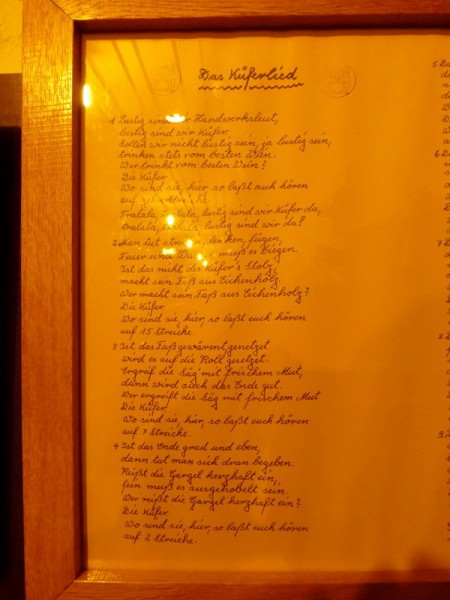 Das Küferlied
1 Lustig sind wir Handwerksleut,
lustig sind wir Küfer.
Sollen wir nicht lustig sein, ja lustig sein,
trinken stets vom besten Wein.
Wer trinkt vom besten Wein?
Die Küfer
Wo sind sie, hier, so laßt euch hören
auf Streiche.
Tralala, tralala, lustig sind wir Küfer da,
tralala, tralala, lustig sind wir da?
2. Man tut fügen,
Feuer und muß es biegen.
Ist das nicht der Küfer's Stolz,
macht sein Faß aus Eichenholz
Wer macht sein Faß aus Eichenholz?
Die Küfer
Wo sind sie, hier, so laßt euch hören
auf 15 Streiche
3. Ist das Faß gewärent, genetzet
wird es auf die Roll gesetzet.
Ergreif die Säg' mit frischem Mut,
dann wird auch das Ende gut.
Wer ergreift die Säg mit frischem Mut
Die Küfer
Wo sind sie, hier, so laßt euch hören
auf 7 Streiche.
4. Ist das Ende grad und eben,
dann tut man sich dran begeben.
Reißt die Gargel herzhaft ein,
fein muß es ausgehobelt sein.
Wer reißt die Gargel herzhaft ein?
Die Küfer.
Wo sind sie, hier, so laßt euch hören
auf 2 Streiche.
5
6
7